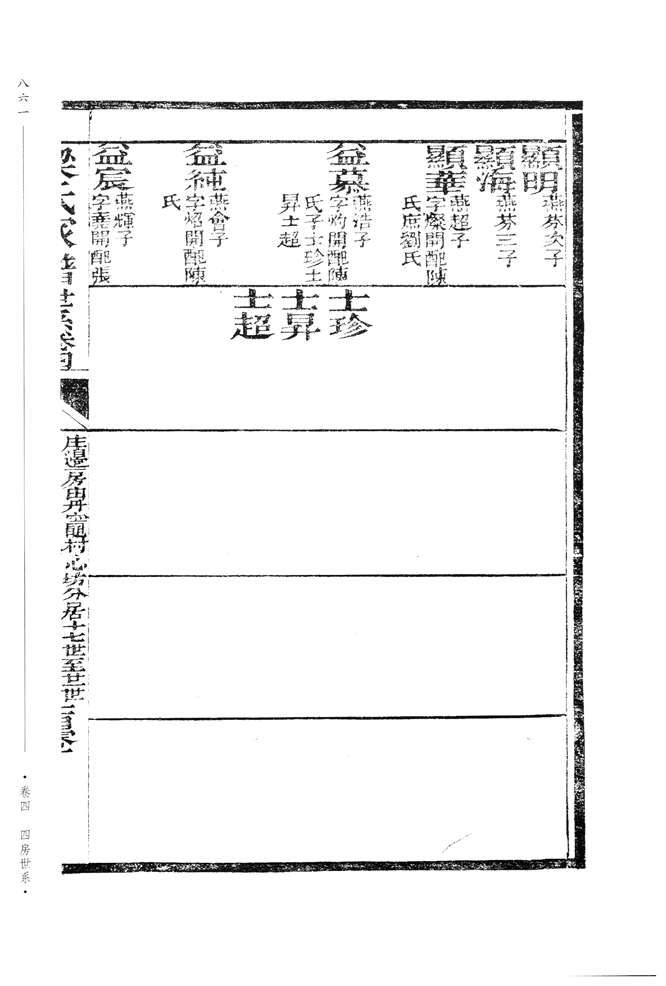 顯明
燕芬次子
顯海
燕芬三子
顯華
燕超子
字燦開配陳
氏庶劉氏
益慕
燕浩子
字灼開配陳
氏子士珍士
昇士超
益純
燕會子
字焰開配陳
氏
益宸
燕輝子
字堯開配張
士珍
士昇
士超
氏家譜世系卷四
房由丹
村心坊分居十七世至廿世
八六一
卷四 四房世系